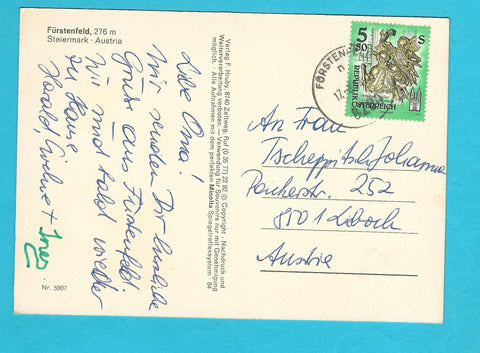 Fürstenfeld, 276 m
Steiermark · Austria
Liebe Oma!
Wir senden Dir herzliche
Grüße aus Fürstenfeld!
Wir sind bald wieder
zu Hause
Harald, Eveline + Ines
Nr. 5907
Verlag F. Hruby, 8740 Zeltweg, Ruf (0 35 77) 22 92 © Copyright · Nachdruck und
Weiterverarbeitung verboten. – Verwendung für Souvenirs nur mit Genehmigung
möglich. · Alle Aufnahmen mit dem perfekten Minolta Spiegelreflexsystem · 84
FÜRSTENF
17.
5 50
S
REPUBLIK
ÖSTERREICH
An Frau
Tscheppitsch Johanna
252
8501 Lieboch
Austria